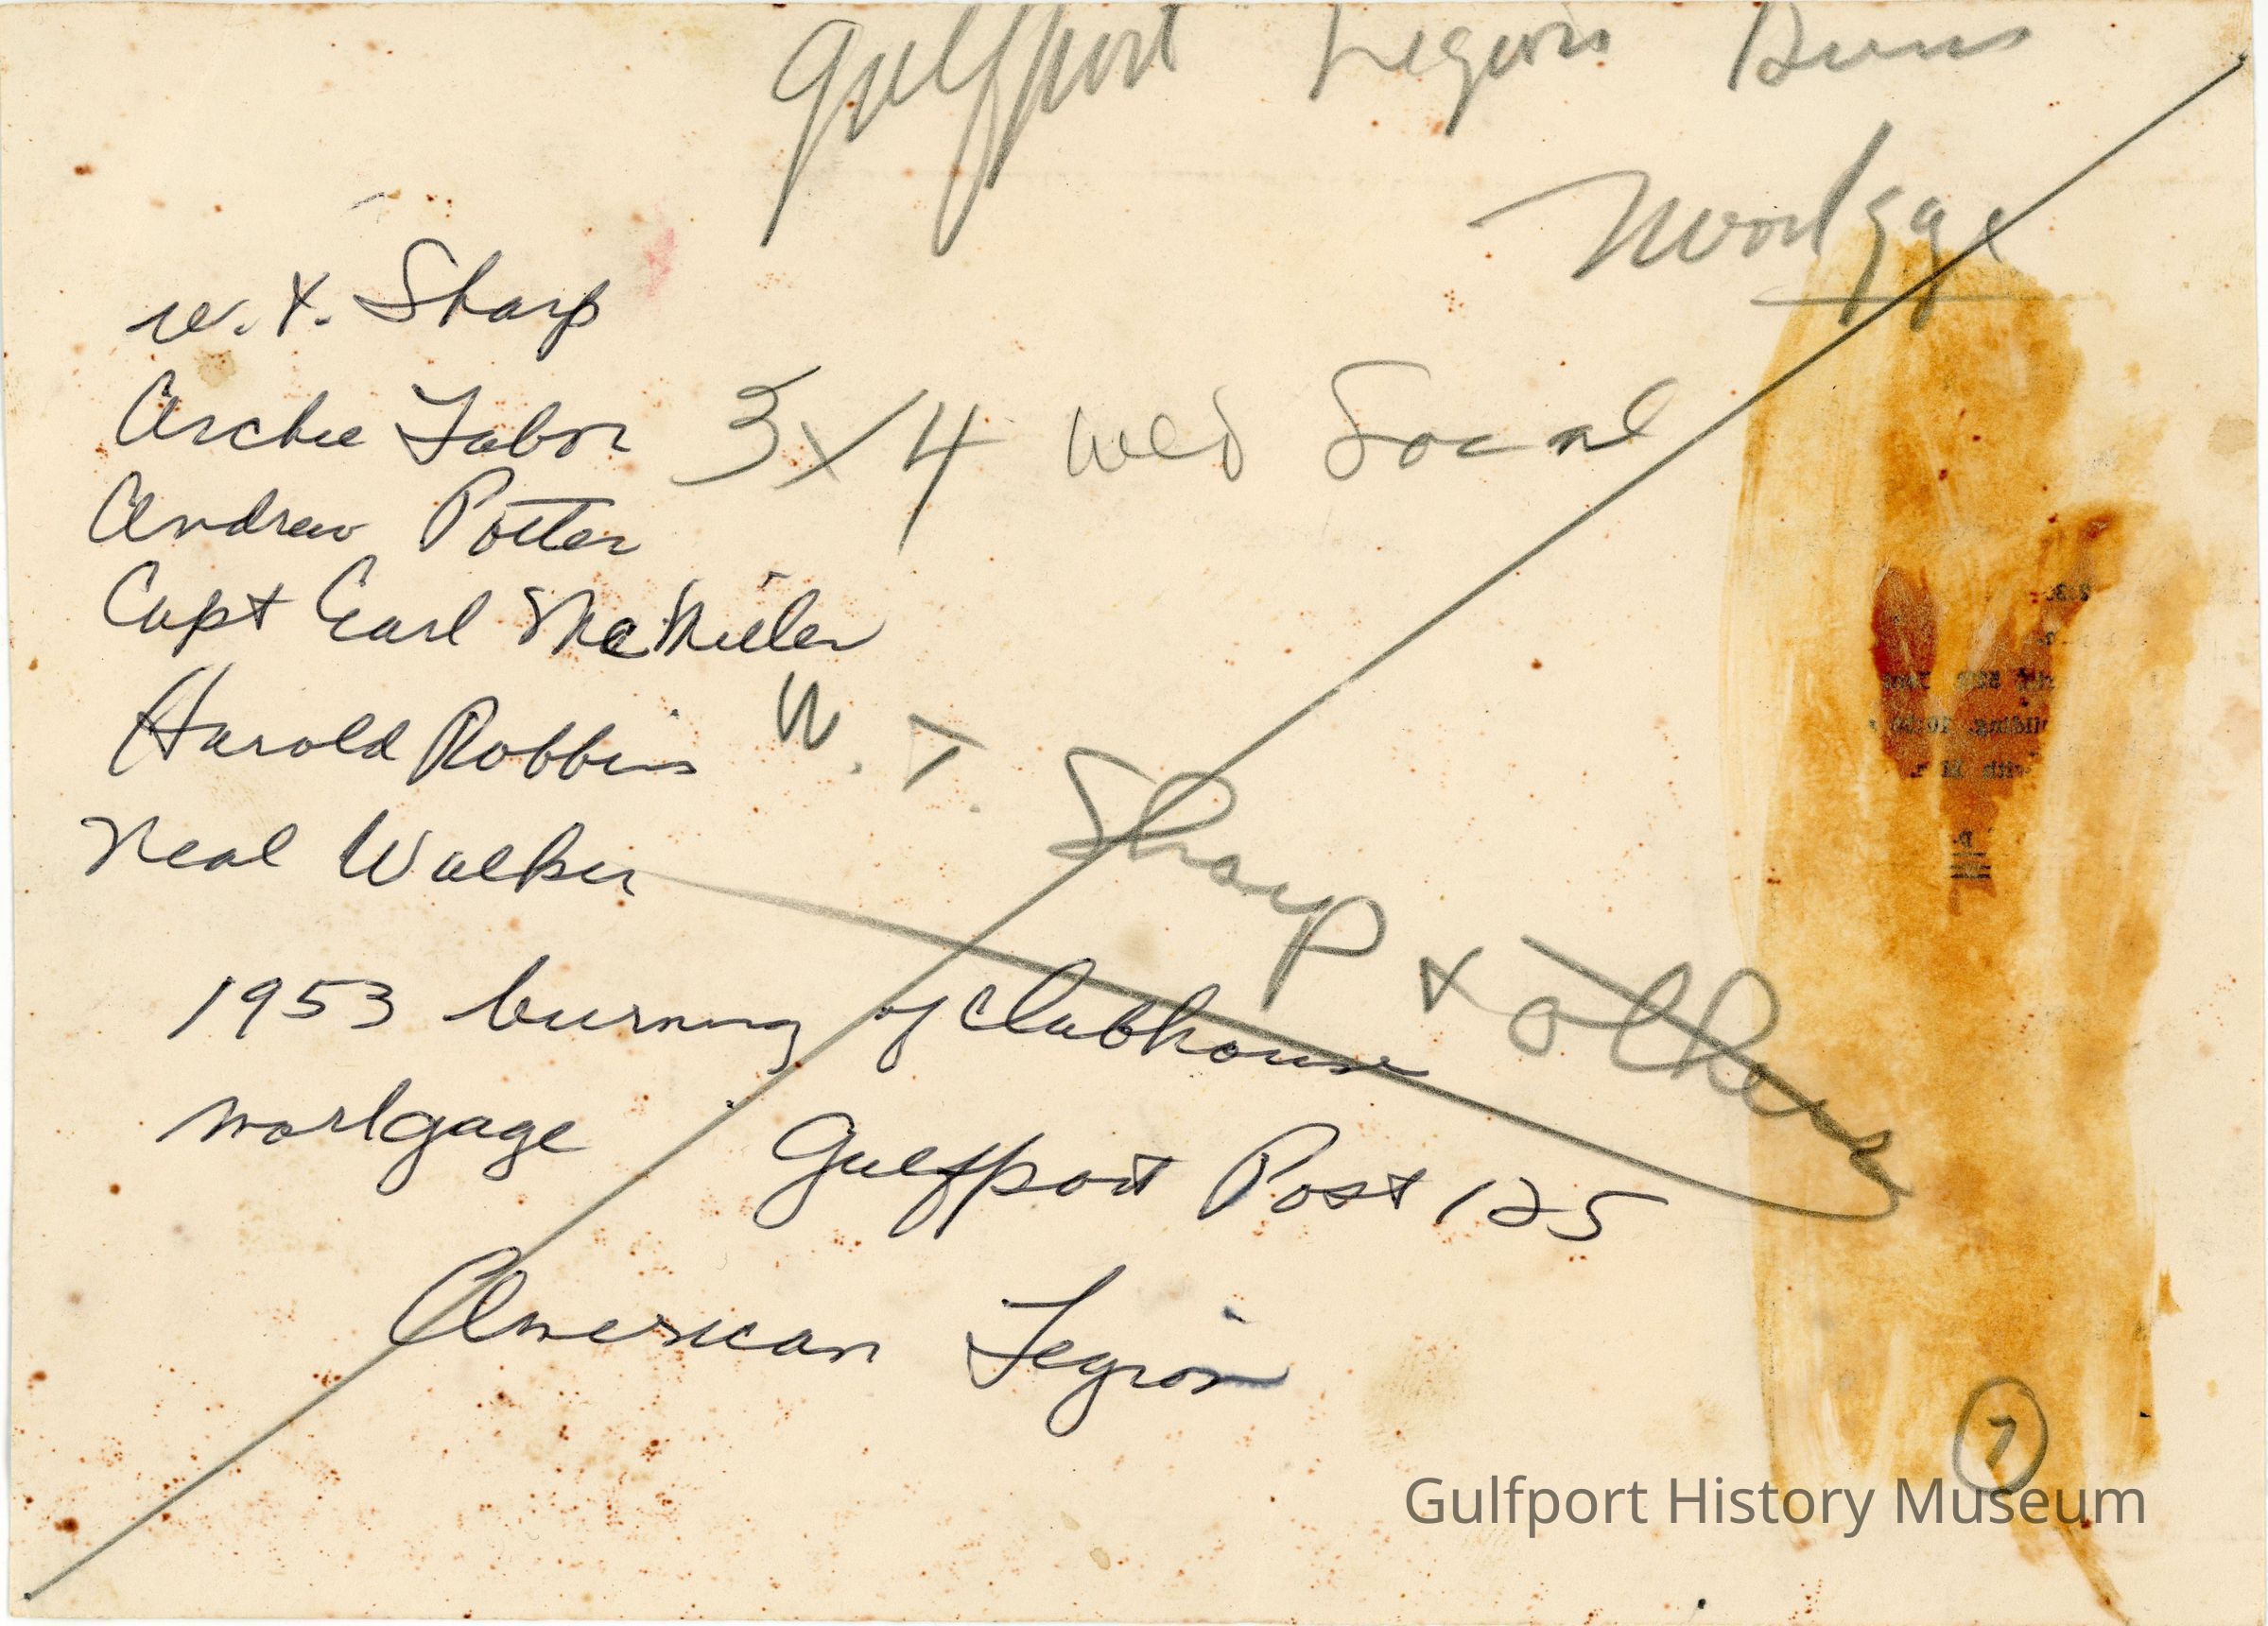 Gulfport Legion Burns
Mortgge
W. T. Sharp
Archie Tabor
3x4 Wed Social
Andrew Potter
Capt Earl
Harold Robbins
W. T. Sharp & others
Neal Walker
1953 burning of clubhouse
mortgage Gulfport Post 125
American Legion
7
Gulfport History Museum